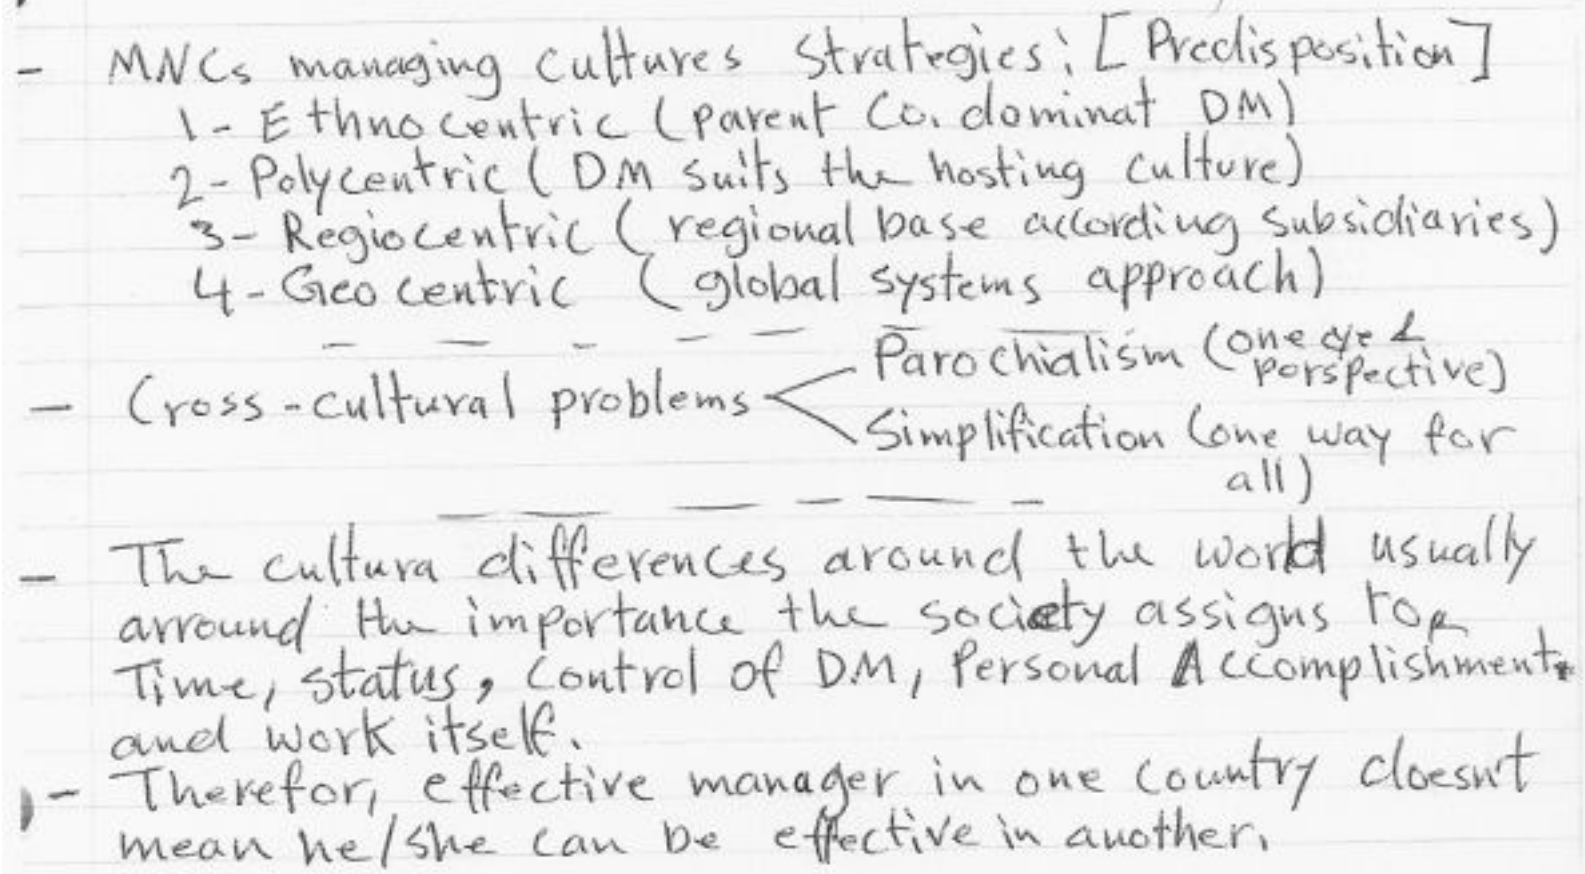 - MNCs managing cultures strategies: [Predisposition]
1- Ethnocentric (parent Co. dominat DM)
2- Polycentric ( DM suits the hosting culture)
3- Regiocentric ( regional base according subsidiaries)
4- Geocentric ( global systems approach)
Parochialism (one eye &
perspective)
- Cross-cultural problems
Simplification (one way for
all)
- The cultura differences around the world usually
arround the importance the society assigns to
Time, status, control of DM, Personal Accomplishment
and work itself.
- Therefor, effective manager in one country doesn't
mean he/she can be effective in another.